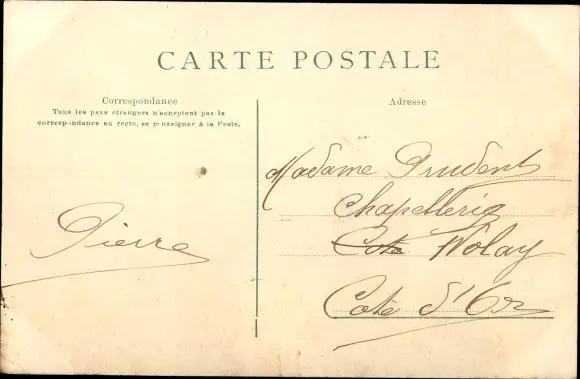 CARTE POSTALE
Correspondance
Tous les pays étrangers n'acceptent pas la
correspondance au recto, se renseigner à la Poste.
Adresse
Madame Prudent
Chapellerie
Cote Nolay
Cote d'Or
Pierre